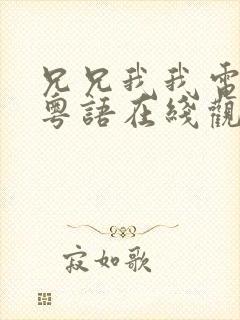 兄兄我我電
粵語在綫觀
寂如歌